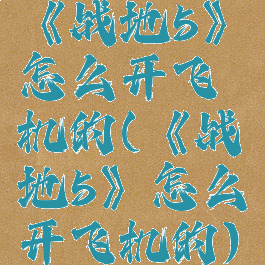 《战地5》
怎么开飞
机的(《战
地5》怎么
开飞机的)